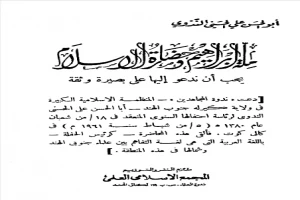 أبو الحسن علي الحسني الندوي
ملة إبراهيم وحضارة الإسلام
يجب أن ندعو إليها على بصيرة وثقة
[ دعت « ندوة المجاهدين » - المنظمة الإسلامية الكبيرة
في ولاية كيرله جنوب الهند - أبا الحسن علي الحسني
الندوي لرئاسة احتفالها السنوي المنعقد في ١٨ / من شعبان
عام ١٣٨٠ هـ ( من شباط ١٩٦١ م ) في
كالي كرت ، فألقى هذه المحاضرة كرئيس الحفلة
باللغة العربية التي هي لغة التفاهم بين علماء جنوبي الهند
وشمالها في هذه المنطقة . ]
المجمع الإسلامي العلمي